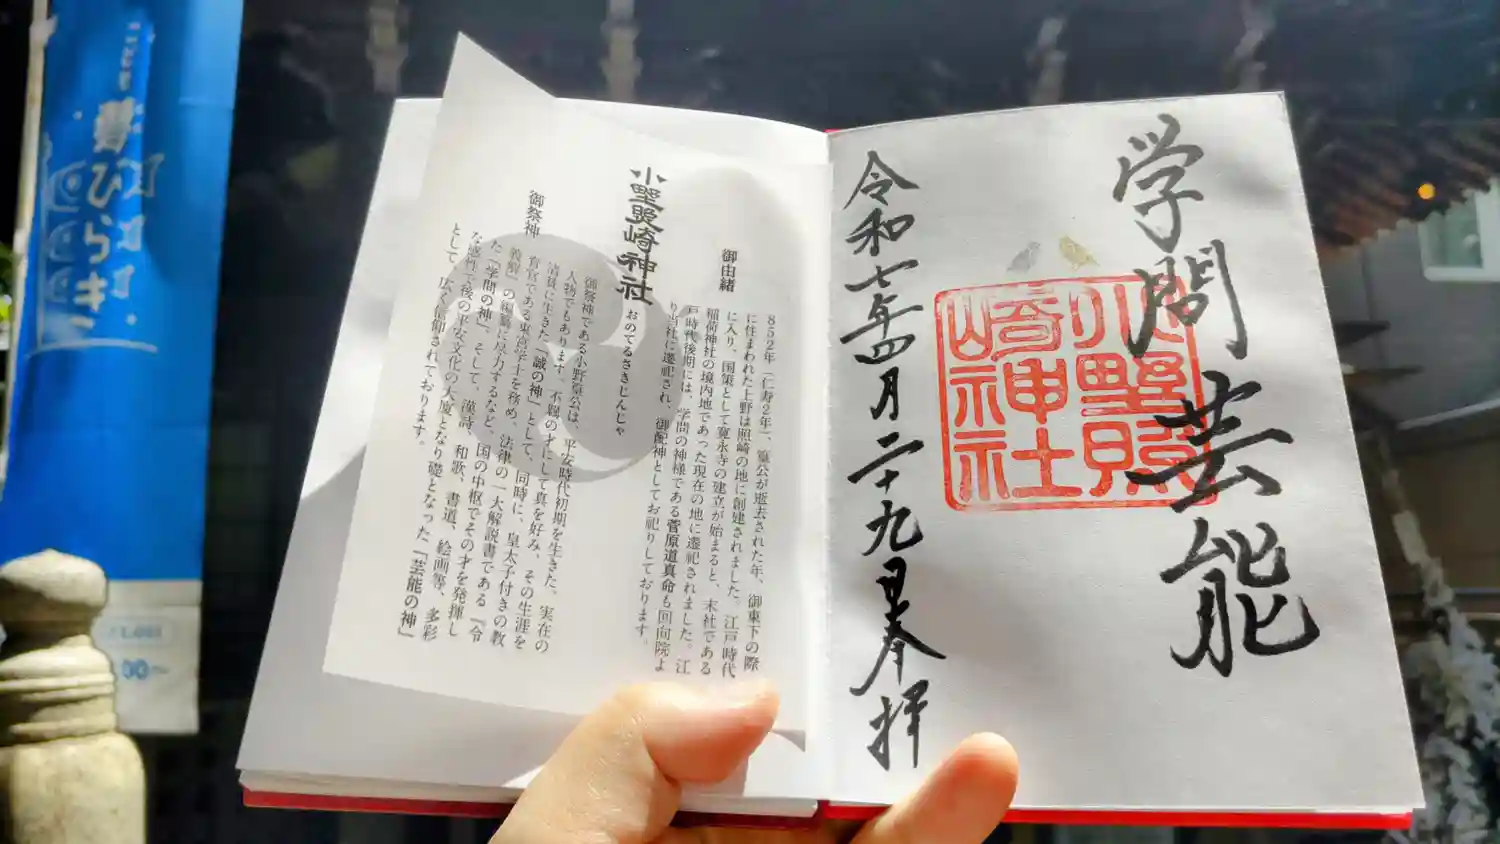 学問芸能
小野照
崎神社
令和七年四月二十九日奉拝
御由緒
852年(仁寿2年)、篁公が逝去された年、御東下の際
に住まわれた上野は照崎の地に創建されました。江戸時代
に入り、国策として寛永寺の建立が始まると、末社である
稲荷神社の境内地であった現在の地に遷祀されました。江
戸時代後期には、学問の神様である菅原道真命も回向院よ
り当社に遷祀され、御配神としてお祀りしております。
小野照崎神社 おのてるさきじんじゃ
御祭神
御祭神である小野篁公は、平安時代初期を生きた、実在の
人物でもあります。不羈の才にして真を好み、その生涯を
清貧に生きた「誠の神」として、同時に、皇太子付きの教
育官である東宮学士を務め、法律の一大解説書である『令
義解』の編纂に尽力するなど、国の中枢でその才を発揮し
た「学問の神」、そして、漢詩、和歌、書道、絵画等、多彩
な感性で後の平安文化の大度となり礎となった「芸能の神」
として、広く信仰されております。
こども
夢ひらき